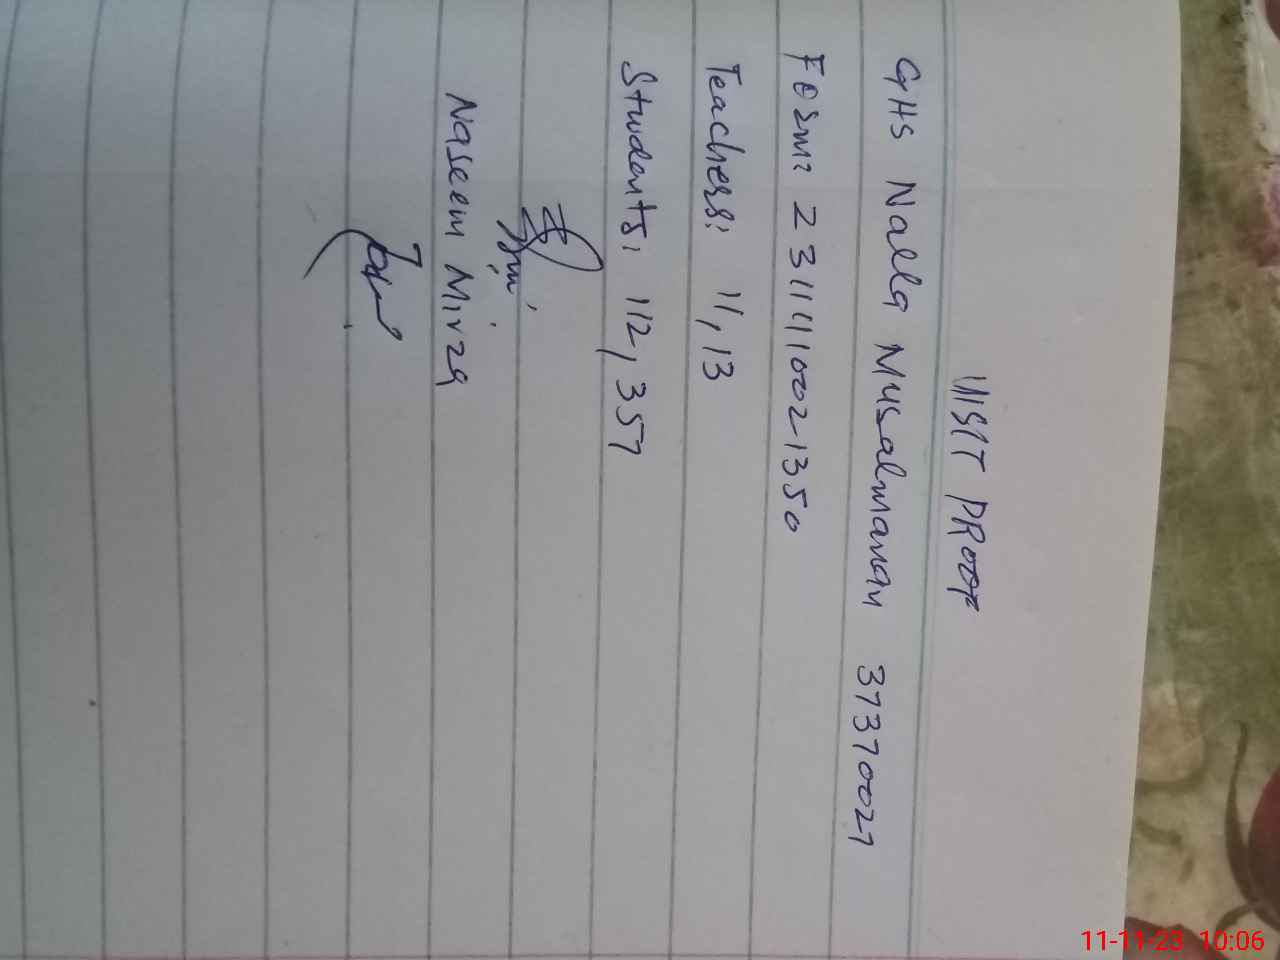 VISIT PROOF
GHS Nalla Musalmanan 37370027
Form: 23111110021350
Teachers: 11, 13
Students: 112, 357
Naseem Mirza
11-11-23 10:06